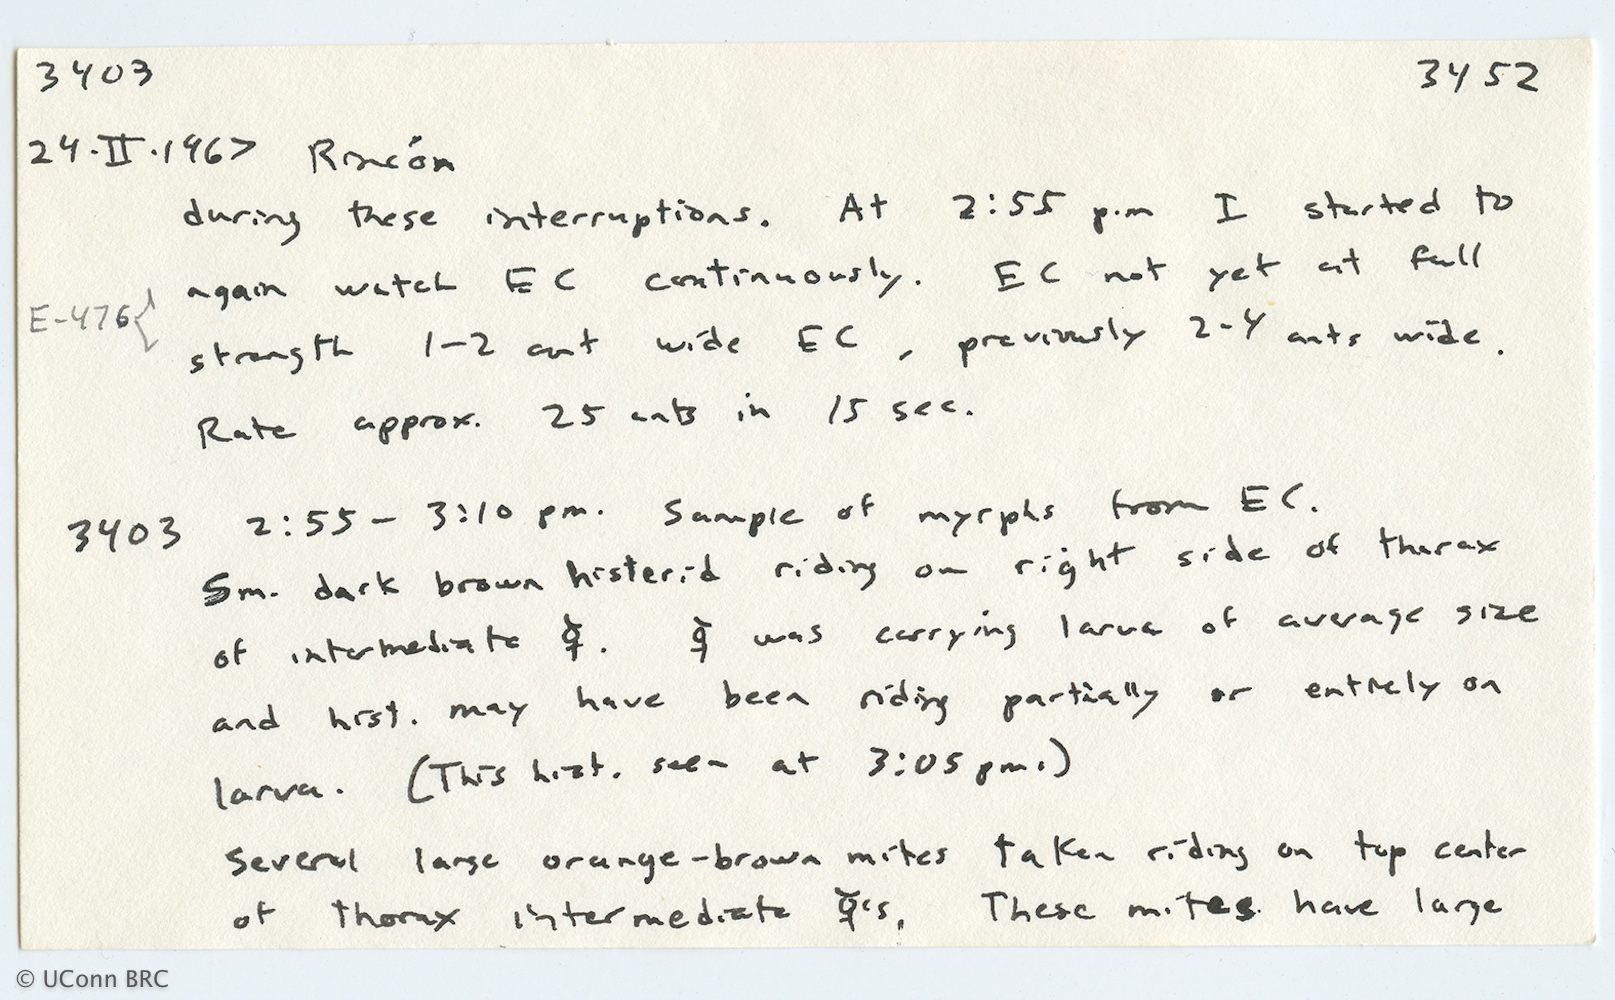 3403 3452
24·II·1967 Rincón
during these interruptions. At 2:55 p.m I started to
again watch EC continuously. EC not yet at full
E-476{
strength 1-2 ant wide EC, previously 2-4 ants wide.
Rate approx. 25 ants in 15 sec.
3403 2:55 – 3:10 pm. Sample of myrphs from EC.
Sm. dark brown histerid riding on right side of thorax
of intermediate ☿. ☿ was carrying larva of average size
and hist. may have been riding partially or entirely on
larva. (This hist. seen at 3:05 pm.)
Several large orange-brown mites taken riding on top center
of thorax intermediate ☿'s. These mites have large
© UConn BRC